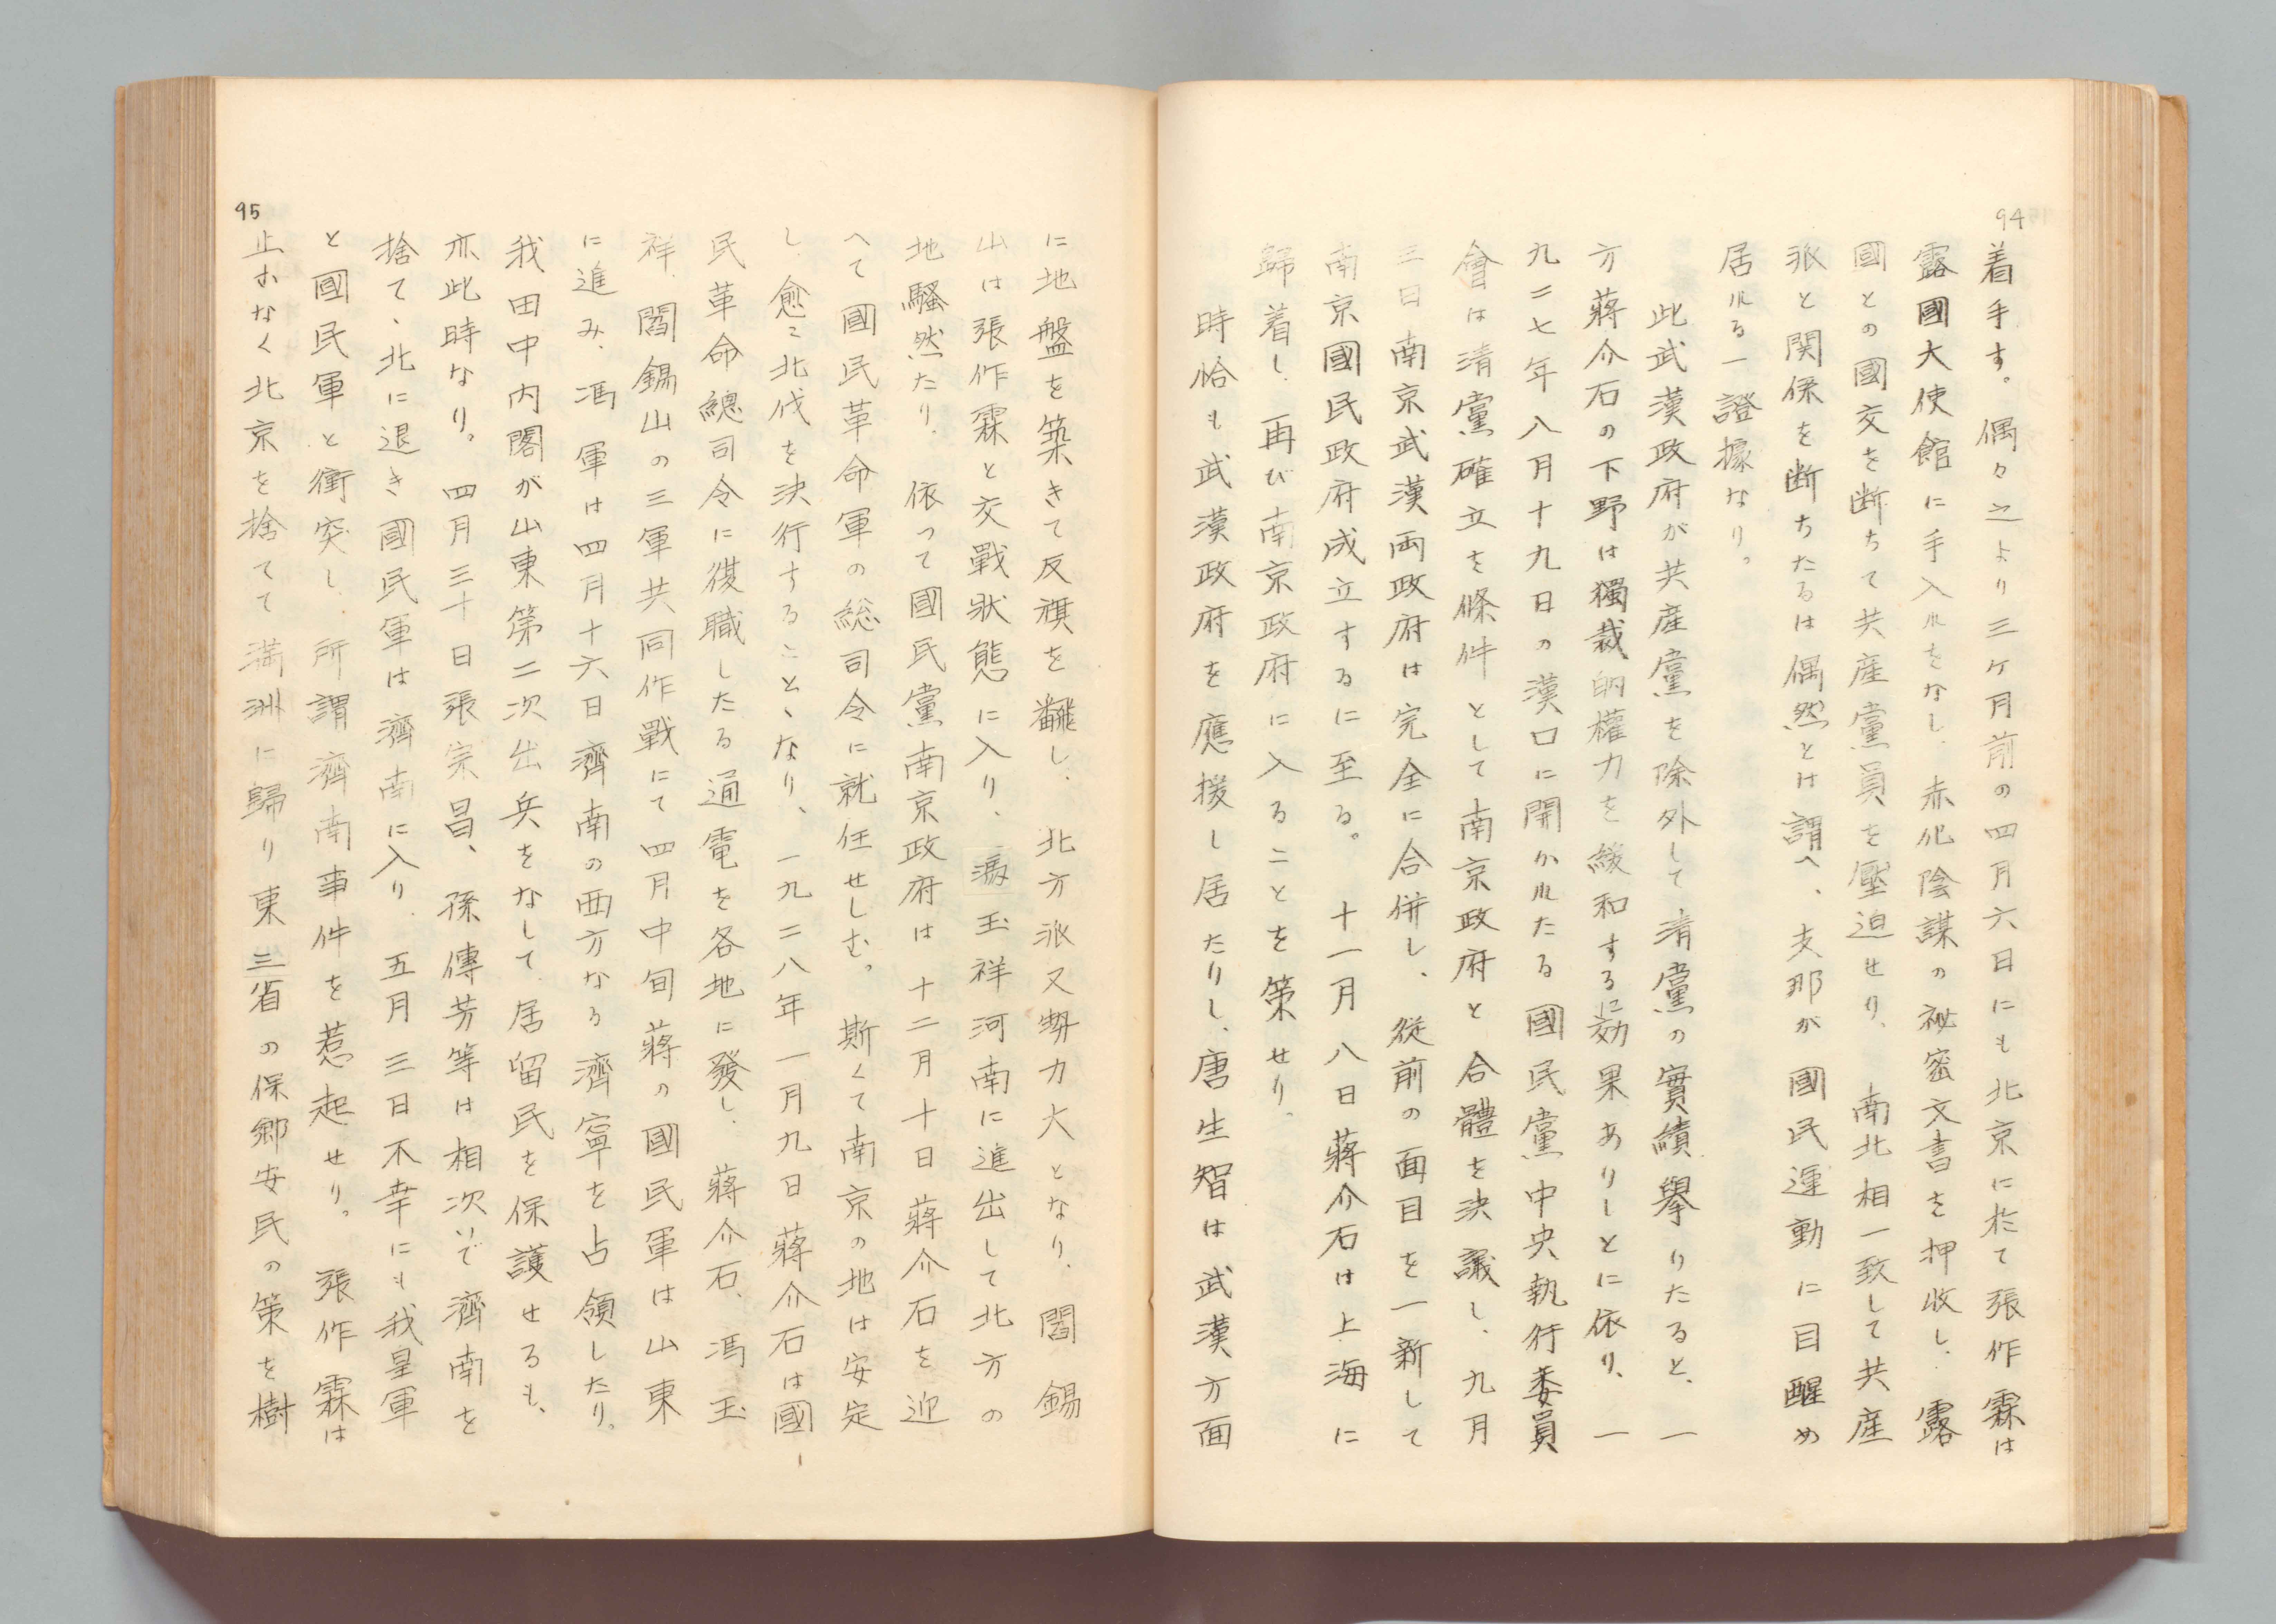 94
着手す。偶々之より三ヶ月前の四月六日にも北京に於て張作霖は
露國大使館に手入れをなし、赤化陰謀の祕密文書を押收し、露
國との國交を断ちて共産黨員を壓迫せり、南北相一致して共産
派と関係を断ちたるは偶然とは謂へ、支那が國民運動に目醒め
居れる一證據なり。
此武漢政府が共産黨を除外して清黨の實績擧りたると、一
方蔣介石の下野は獨裁的權力を緩和するに効果ありしとに依り、一
九二七年八月十九日の漢口に開かれたる國民黨中央執行委員
會は清黨確立を條件として南京政府と合體を決議し、九月
三日南京武漢両政府は完全に合併し、從前の面目を一新して
南京國民政府成立するに至る。十一月八日蔣介石は上海に
歸着し、再び南京政府に入ることを策せり。
時恰も武漢政府を應援し居たりし、唐生智は武漢方面
95
に地盤を築きて反旗を飜し、北方派又勢力大となり、閻錫
山は張作霖と交戰狀態に入り、馮玉祥河南に進出して北方の
地騒然たり、依って國民黨南京政府は十二月十日蔣介石を迎
へて國民革命軍の総司令に就任せしむ。斯くて南京の地は安定
し、愈々北伐を決行することゝなり、一九二八年一月九日蔣介石は國
民革命總司令に復職したる通電を各地に發し、蔣介石、馮玉
祥、閻錫山の三軍共同作戰にて四月中旬蔣の國民軍は山東
に進み、馮軍は四月十六日濟南の西方なる濟寧を占領したり。
我田中内閣が山東第二次出兵をなして居留民を保護せるも、
亦此時なり。四月三十日張宗昌、孫傳芳等は相次いで濟南を
捨て、北に退き國民軍は濟南に入り、五月三日不幸にも我皇軍
と國民軍と衝突し、所謂濟南事件を惹起せり。張作霖は
止むなく北京を捨てて満洲に歸り東三省の保郷安民の策を樹